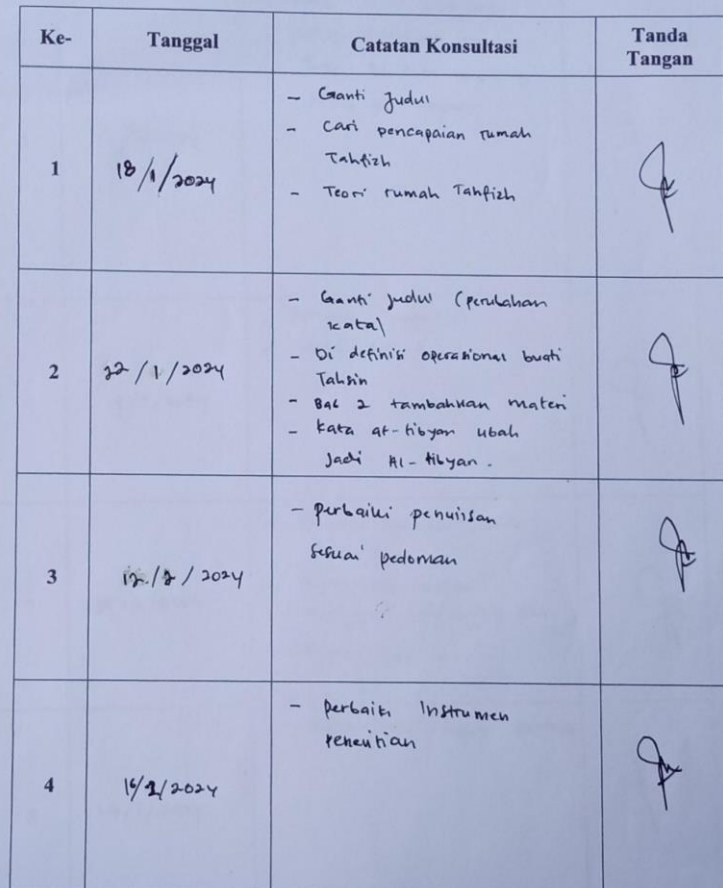 Ke-
Tanggal
Catatan Konsultasi
Tanda
Tangan
1
18/1/2024
- Ganti Judul
- Cari pencapaian rumah
Tahfizh
- Teori rumah Tahfizh
2
22/1/2024
- Ganti judul (perubahan
kata)
- Di definisi operasional buati
Tahsin
- Bab 2 tambahkan materi
- Kata at-tibyan ubah
Jadi Al-tibyan.
3
12/2/2024
- perbaiki penulisan
sesuai pedoman
4
16/2/2024
- perbaiki Instrumen
penelitian